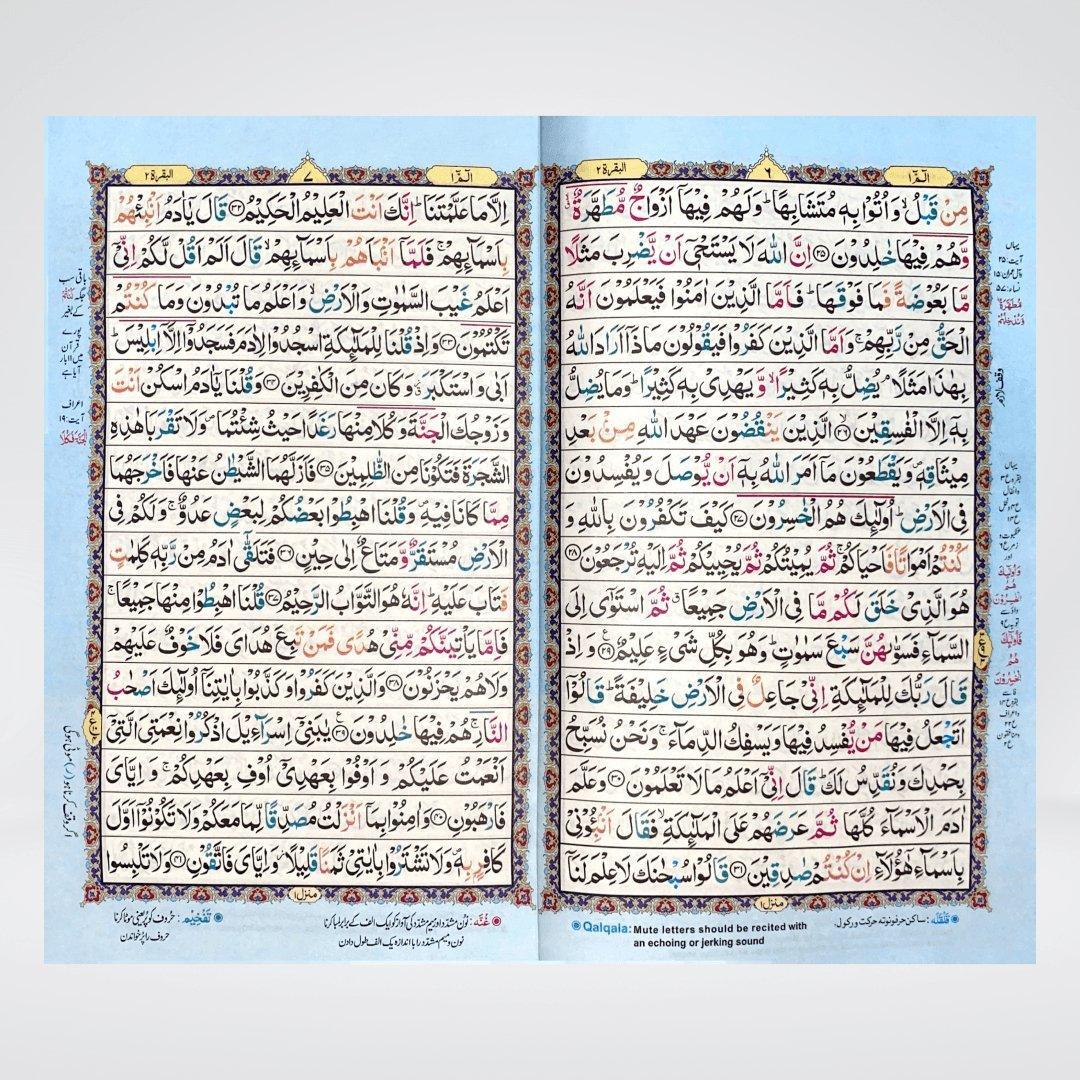 الٓمّٓ ١
٦
البقرة ٢
مِنْ قَبْلُ ۙ وَاُتُوْا بِهٖ مُتَشَابِهًا ؕ وَلَهُمْ فِيْهَاۤ اَزْوَاجٌ مُّطَهَّرَةٌ
وَّهُمْ فِيْهَا خٰلِدُوْنَ ﴿٢٥﴾ اِنَّ اللّٰهَ لَا يَسْتَحْيٖۤ اَنْ يَّضْرِبَ مَثَلًا
مَّا بَعُوْضَةً فَمَا فَوْقَهَا ؕ فَاَمَّا الَّذِيْنَ اٰمَنُوْا فَيَعْلَمُوْنَ اَنَّهُ
الْحَقُّ مِنْ رَّبِّهِمْ ۚ وَاَمَّا الَّذِيْنَ كَفَرُوْا فَيَقُوْلُوْنَ مَاذَاۤ اَرَادَ اللّٰهُ
بِهٰذَا مَثَلًا ۘ يُضِلُّ بِهٖ كَثِيْرًا ۙ وَّيَهْدِيْ بِهٖ كَثِيْرًا ؕ وَمَا يُضِلُّ
بِهٖۤ اِلَّا الْفٰسِقِيْنَ ﴿٢٦﴾ۙ الَّذِيْنَ يَنْقُضُوْنَ عَهْدَ اللّٰهِ مِنْۢ بَعْدِ
مِيْثَاقِهٖ ۪ وَيَقْطَعُوْنَ مَاۤ اَمَرَ اللّٰهُ بِهٖۤ اَنْ يُّوْصَلَ وَيُفْسِدُوْنَ
فِى الْاَرْضِ ؕ اُولٰٓئِكَ هُمُ الْخٰسِرُوْنَ ﴿٢٧﴾ كَيْفَ تَكْفُرُوْنَ بِاللّٰهِ وَ
كُنْتُمْ اَمْوَاتًا فَاَحْيَاكُمْ ۚ ثُمَّ يُمِيْتُكُمْ ثُمَّ يُحْيِيْكُمْ ثُمَّ اِلَيْهِ تُرْجَعُوْنَ ﴿٢٨﴾
هُوَ الَّذِيْ خَلَقَ لَكُمْ مَّا فِى الْاَرْضِ جَمِيْعًا ۗ ثُمَّ اسْتَوٰۤى اِلَى
السَّمَآءِ فَسَوّٰىهُنَّ سَبْعَ سَمٰوٰتٍ ؕ وَهُوَ بِكُلِّ شَىْءٍ عَلِيْمٌ ﴿٢٩﴾ وَاِذْ
قَالَ رَبُّكَ لِلْمَلٰٓئِكَةِ اِنِّيْ جَاعِلٌ فِى الْاَرْضِ خَلِيْفَةً ؕ قَالُوْۤا
اَتَجْعَلُ فِيْهَا مَنْ يُّفْسِدُ فِيْهَا وَيَسْفِكُ الدِّمَآءَ ۚ وَنَحْنُ نُسَبِّحُ
بِحَمْدِكَ وَنُقَدِّسُ لَكَ ؕ قَالَ اِنِّيْۤ اَعْلَمُ مَا لَا تَعْلَمُوْنَ ﴿٣٠﴾ وَعَلَّمَ
اٰدَمَ الْاَسْمَآءَ كُلَّهَا ثُمَّ عَرَضَهُمْ عَلَى الْمَلٰٓئِكَةِ ۙ فَقَالَ اَنْۢبِـُٔوْنِيْ
بِاَسْمَآءِ هٰۤؤُلَآءِ اِنْ كُنْتُمْ صٰدِقِيْنَ ﴿٣١﴾ قَالُوْا سُبْحٰنَكَ لَا عِلْمَ لَنَاۤ
منزل ١
قَلْقَلَه: ساکن حرف
Qalqala: Mute letters should be recited with
an echoing or jerking sound
الٓمّٓ ١
٧
البقرة ٢
اِلَّا مَا عَلَّمْتَنَا ؕ اِنَّكَ اَنْتَ الْعَلِيْمُ الْحَكِيْمُ ﴿٣٢﴾ قَالَ يٰۤاٰدَمُ اَنْۢبِئْهُمْ
بِاَسْمَآئِهِمْ ۚ فَلَمَّاۤ اَنْۢبَاَهُمْ بِاَسْمَآئِهِمْ ۙ قَالَ اَلَمْ اَقُلْ لَّكُمْ اِنِّيْۤ
اَعْلَمُ غَيْبَ السَّمٰوٰتِ وَالْاَرْضِ ۙ وَاَعْلَمُ مَا تُبْدُوْنَ وَمَا كُنْتُمْ
تَكْتُمُوْنَ ﴿٣٣﴾ وَاِذْ قُلْنَا لِلْمَلٰٓئِكَةِ اسْجُدُوْا لِاٰدَمَ فَسَجَدُوْۤا اِلَّاۤ اِبْلِيْسَ ؕ
اَبٰى وَاسْتَكْبَرَ ۗ وَكَانَ مِنَ الْكٰفِرِيْنَ ﴿٣٤﴾ وَقُلْنَا يٰۤاٰدَمُ اسْكُنْ اَنْتَ
وَزَوْجُكَ الْجَنَّةَ وَكُلَا مِنْهَا رَغَدًا حَيْثُ شِئْتُمَا ۪ وَلَا تَقْرَبَا هٰذِهِ
الشَّجَرَةَ فَتَكُوْنَا مِنَ الظّٰلِمِيْنَ ﴿٣٥﴾ فَاَزَلَّهُمَا الشَّيْطٰنُ عَنْهَا فَاَخْرَجَهُمَا
مِمَّا كَانَا فِيْهِ ۪ وَقُلْنَا اهْبِطُوْا بَعْضُكُمْ لِبَعْضٍ عَدُوٌّ ۚ وَلَكُمْ فِى
الْاَرْضِ مُسْتَقَرٌّ وَّمَتَاعٌ اِلٰى حِيْنٍ ﴿٣٦﴾ فَتَلَقّٰۤى اٰدَمُ مِنْ رَّبِّهٖ كَلِمٰتٍ
فَتَابَ عَلَيْهِ ؕ اِنَّهٗ هُوَ التَّوَّابُ الرَّحِيْمُ ﴿٣٧﴾ قُلْنَا اهْبِطُوْا مِنْهَا جَمِيْعًا ۚ
فَاِمَّا يَاْتِيَنَّكُمْ مِّنِّيْ هُدًى فَمَنْ تَبِعَ هُدَايَ فَلَا خَوْفٌ عَلَيْهِمْ
وَلَا هُمْ يَحْزَنُوْنَ ﴿٣٨﴾ وَالَّذِيْنَ كَفَرُوْا وَكَذَّبُوْا بِاٰيٰتِنَاۤ اُولٰٓئِكَ اَصْحٰبُ
النَّارِ ۚ هُمْ فِيْهَا خٰلِدُوْنَ ﴿٣٩﴾ يٰبَنِيْۤ اِسْرَآءِيْلَ اذْكُرُوْا نِعْمَتِيَ الَّتِيْۤ
اَنْعَمْتُ عَلَيْكُمْ وَاَوْفُوْا بِعَهْدِيْۤ اُوْفِ بِعَهْدِكُمْ ۚ وَاِيَّايَ
فَارْهَبُوْنِ ﴿٤٠﴾ وَاٰمِنُوْا بِمَاۤ اَنْزَلْتُ مُصَدِّقًا لِّمَا مَعَكُمْ وَلَا تَكُوْنُوْۤا اَوَّلَ
كَافِرٍۭ بِهٖ ۪ وَلَا تَشْتَرُوْا بِاٰيٰتِيْ ثَمَنًا قَلِيْلًا ۡ وَّاِيَّايَ فَاتَّقُوْنِ ﴿٤١﴾ وَلَا تَلْبِسُوا
منزل ١
غُنَّه: نون مشدّد اور میم مشدّد کی آواز کو ایک الف کے برابر لمبا کرنا
نون و میم مشدّد را با اندازہ یک الف طول دادن
تَفْخِیْم: حروف کو پُر یعنی موٹا کرنا
حروف را پُر خواندن